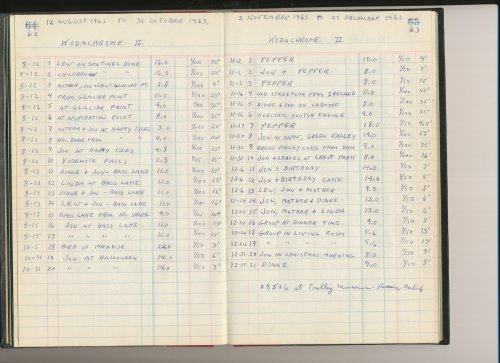 62
12 AUGUST 1963 TO 31 OCTOBER 1963
KODACHROME II
8-12 1 LEW ON SENTINEL DOME 16.0 1/100 50'
8-12 2 CHILDREN " " 16.0 1/100 50'
8-12 3 MOTHER, JON + LEW - GLACIER PT. 2.8 1/100 4'
8-12 4 FROM GLACIER POINT 11.0 1/100
8-12 5 AT GLACIER POINT 9.0 1/100
8-12 6 AT INSPIRATION POINT 8.0 1/100
8-12 7 MOTHER + JON AT HAPPY ISLES 3.0 1/100 20'
8-12 8 NO. DOME FROM 11.0 1/100
8-12 9 JON AT HAPPY ISLES 4.8 1/100 15'
8-12 10 YOSEMITE FALLS 2.8 1/25
8-13 11 DIANE + JON - BASS LAKE 11.0 1/100
8-13 12 LINDA AT BASS LAKE 11.0 1/100 13'
8-13 13 DIANE + JON - BASS LAKE 11.0 1/100 16'
8-13 14 LEW + JON - BASS LAKE 11.0 1/100 16'
8-13 15 BASS LAKE FROM NO. SHORE 9.0 1/100
8-15 16 JON AT BASS LAKE 11.0 1/100 13'
8-15 17 " " " " 11.0 1/100 13'
10-5 18 BIRD OF PARADISE 1/50 3'
10-31 19 JON AT HALLOWEEN 14.0 1/50 6'
10-31 20 " " " 14.0 1/50 7'
63
2 NOVEMBER 1963 TO 25 DECEMBER 1963
KODACHROME II
11-2 1 PEPPER 10.0 1/50 4'
11-2 2 JON + PEPPER 8.0 1/50 7'
11-2 3 PEPPER 8.0 1/50 10'
11-16 4 OLD STREETCAR FROM IRELAND 11.0 1/100 50'
11-16 5 DIANE + JON ON CABOOSE 8.0 1/100
11-16 6 ELECTRIC SWITCH ENGINE 9.0 1/100
11-17 7 PEPPER 18.0 1/50
11-30 8 JON IN SNOW, GREEN VALLEY 19.0 1/100 13'
11-30 9 GREEN VALLEY LAKE FROM DAM 9.0 1/100
11-30 10 JON + LEAVES AT CREST PARK 8.0 1/100
12-6 11 JON'S BIRTHDAY 14.0 1/50 7'
12-6 12 JON + BIRTHDAY CAKE 14.0 1/50 5'
12-6 13 LEW, JON + MOTHER 9.0 1/50 8'
12-24 14 JON, MOTHER + DIANE 13.0 1/50 6'
12-24 15 JON, MOTHER + LINDA 13.0 1/50 6'
12-24 16 GROUP AT DINNER TIME 9.0 1/50 9'
12-24 18 GROUP IN LIVING ROOM 5.6 1/50 13'
12-24 19 " " " " 5.6 1/50 13'
12-25 20 JON IN CHRISTMAS MORNING 8.0 1/50 9'
12-25 21 DIANE 9.0 1/50 8'
#4,5+6 at Trolley Museum - Perris, Calif